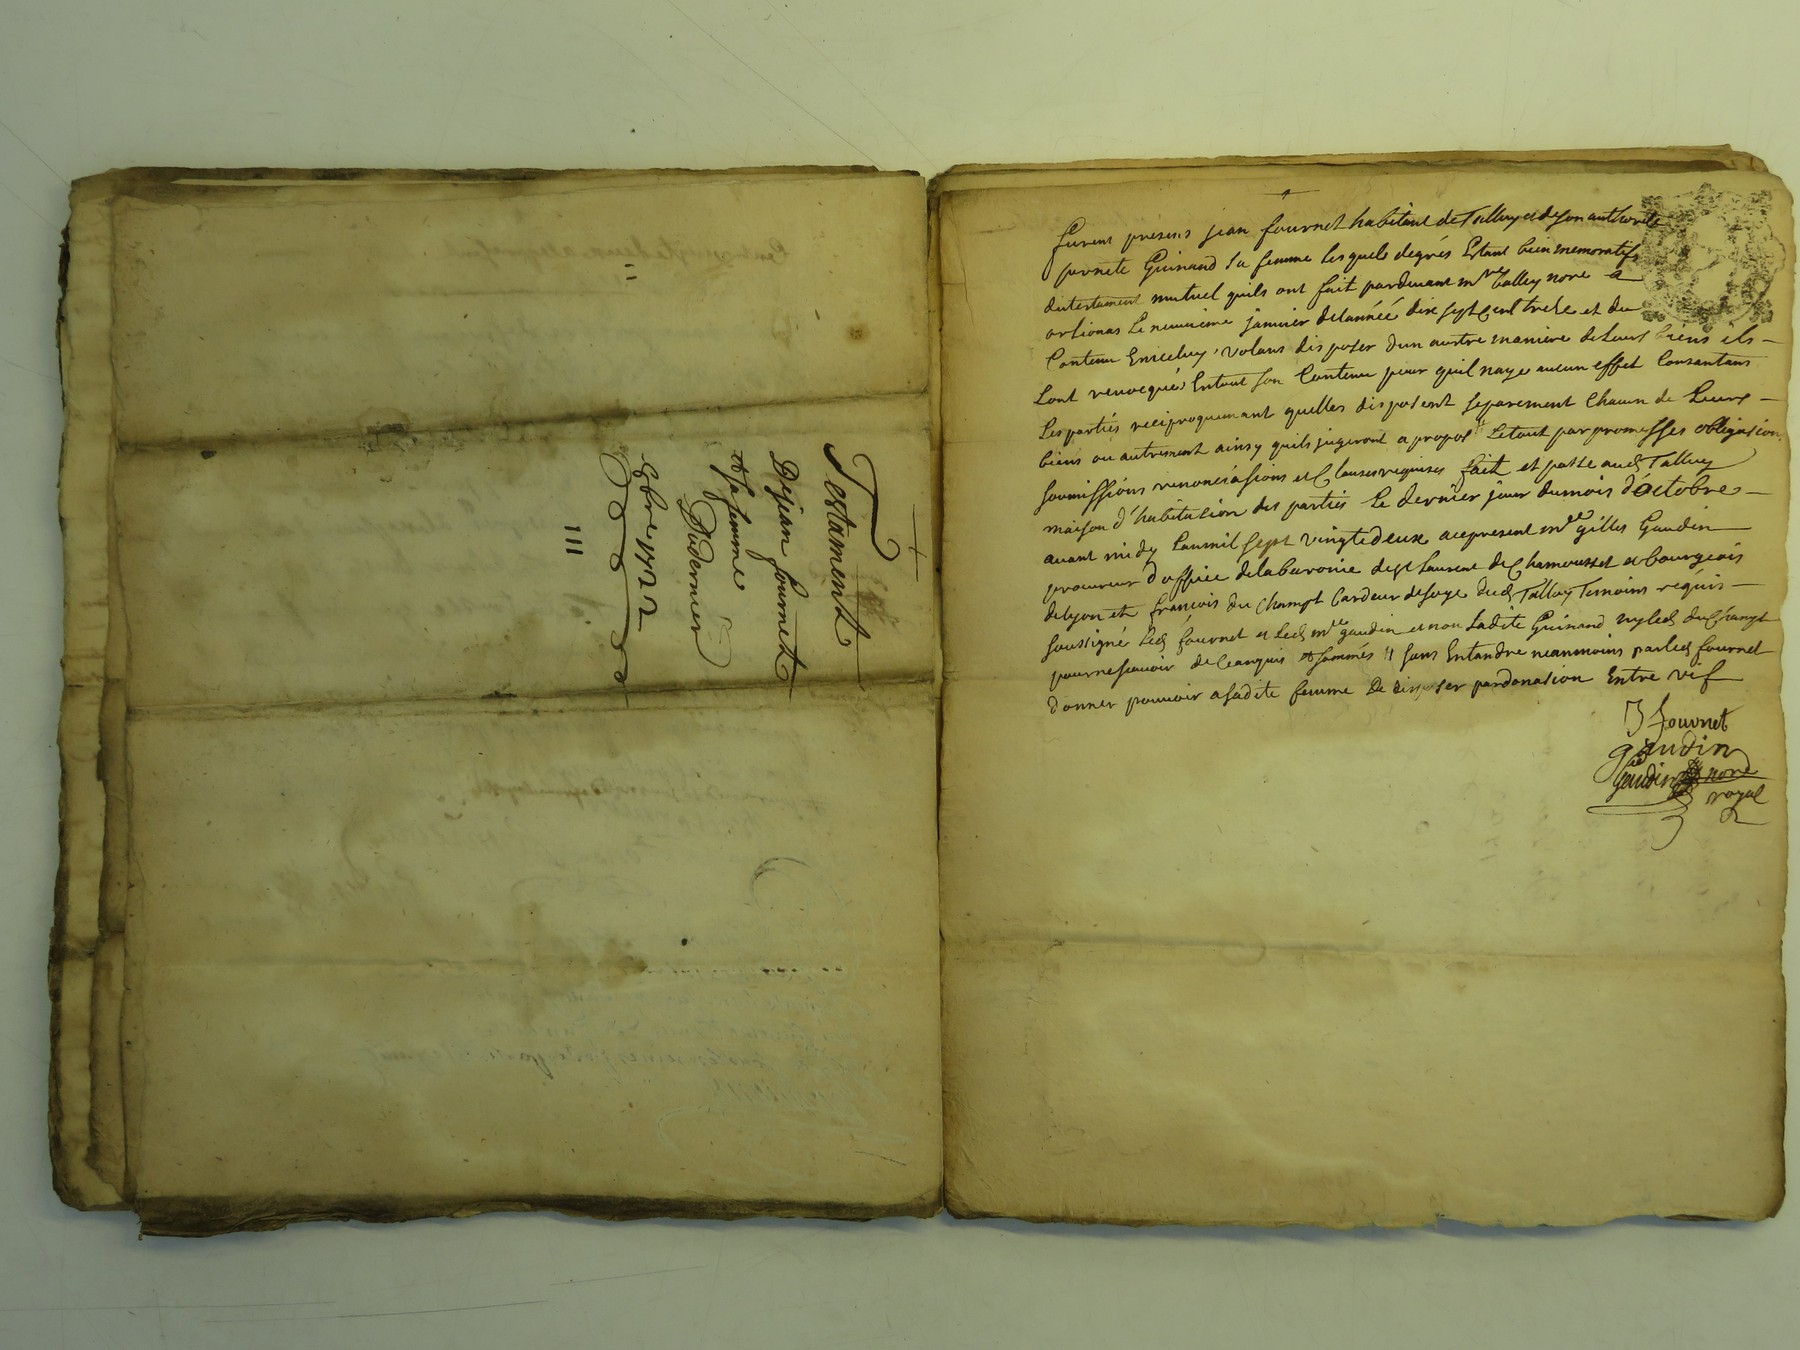 Testament
De jean fournet
et sa femme
Du dernier
8bre 1722
furent présens jean fournet habitant de Talluy et de son authorité
pernete Guinand sa femme lesquels degrés Estant bien memoratifs
du testament mutuel quils ont fait pardevant mre valley nore a
orlienas Le neuvieme janvier delannéé dix sept cent treze et du
Contenu Eniceluy, volans disposer dun auttre maniere de Leurs biens ils
Lont revocqué Entout son Contenu pour quil naye aucun effet Consantans
Les partiés reciproquemant quelles disposent separement Chacun de Leurs
biens ou autrement ainsy quils jugeront a propos # Le tout par promesses obligasions
soumissions renonciasions et Clauses requises fait et passé aud Talluy
maison d'habitasion des partiés Le dernier jour dumois d'octobre
avant midy Lan mil sept vingtedeux acepresent mre gilles Gaudin
procureur d'office delabaronie de st Laurent de Chamousset et bourgeois
de lyon et françois du Champt Cardeur de soye dud Talluy Temoins requis
soussigné Led fournet et Led mre gaudin et non Ladite Guinand ny led du Champt
pour ne scavoir de Ceanquis et sommés # sans Entandre neanmoins par led fournet
donner pouvoir a sadite femme De disposer par donasion Entre vif
J fournet
gaudin
Gaudin nore
royal